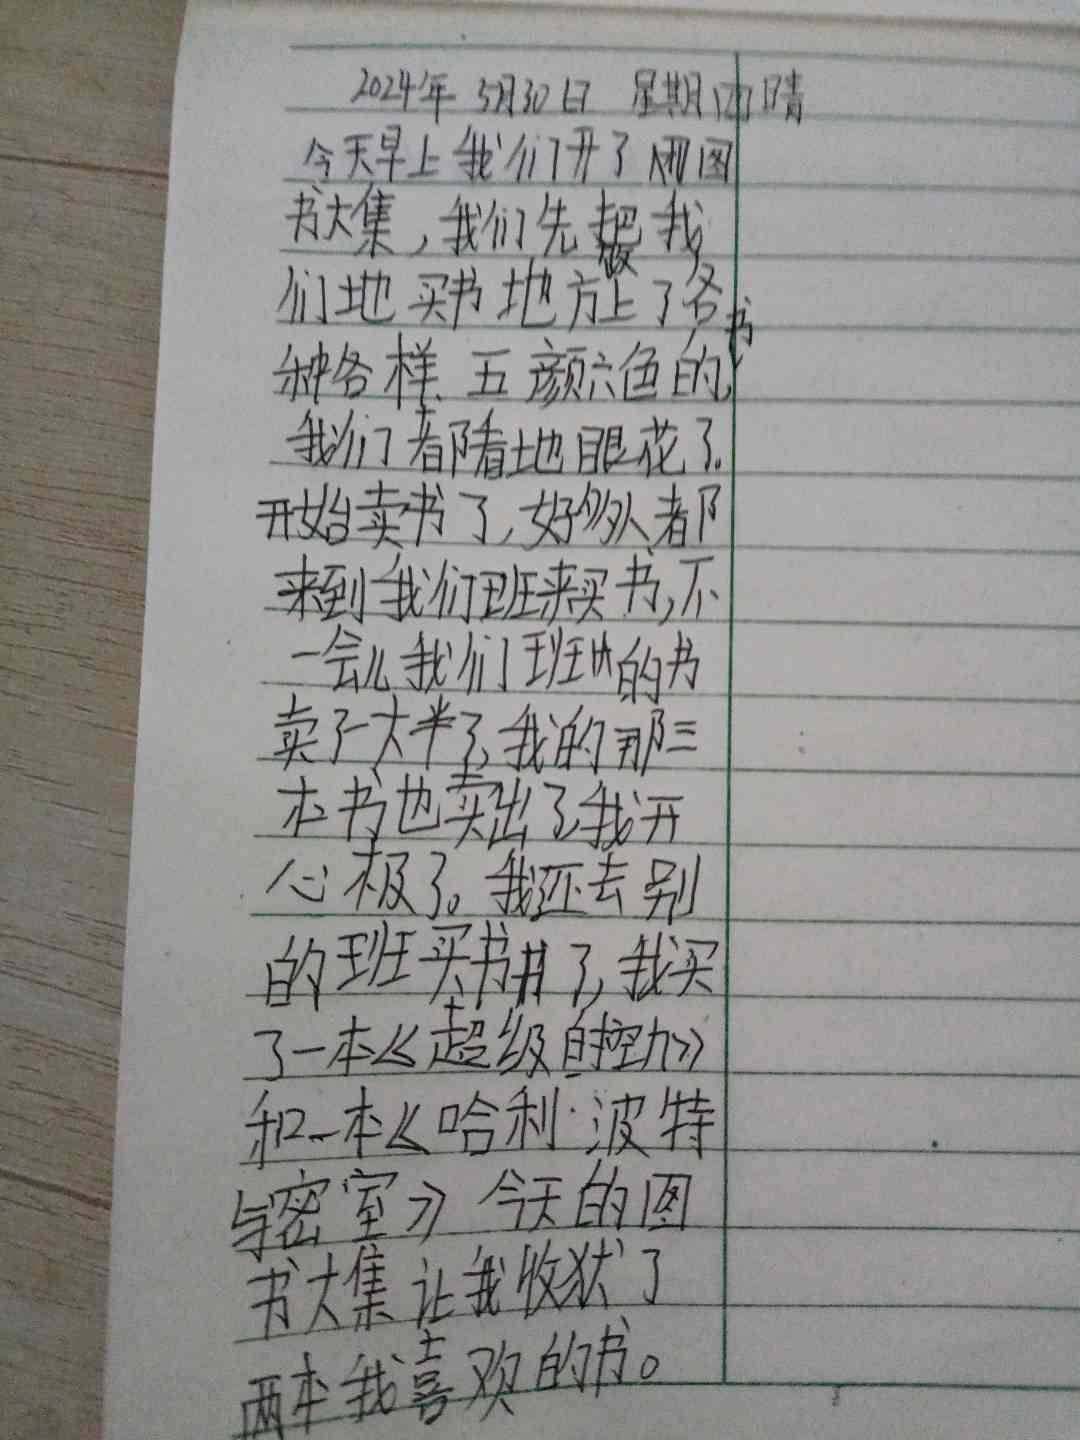 2024年 5月30日 星期四 晴
今天早上我们开了图
书大集,我们先把我
们地买书地方放上了各
种各样、五颜六色的书,
我们都看地眼花了。
开始卖书了,好多人都
来到我们班来买书,不
一会儿我们班的书
卖了一大半了,我的那三
本书也卖出了,我开
心极了。我还去别
的班买书了,我买
了一本《超级自控力》
和一本《哈利·波特
与密室》今天的图
书大集让我收狱了
两本我喜欢的书。